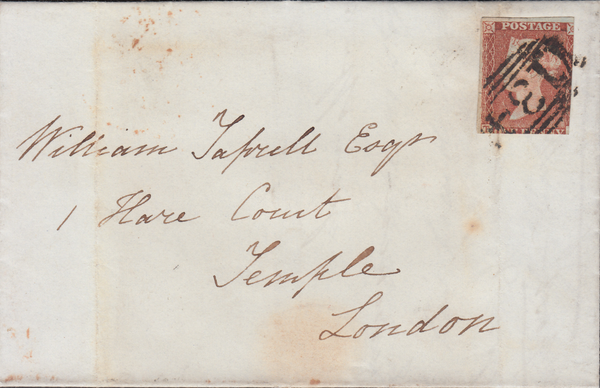 POSTAGE
William Taprell Esqr
1 Hare Court
Temple
London